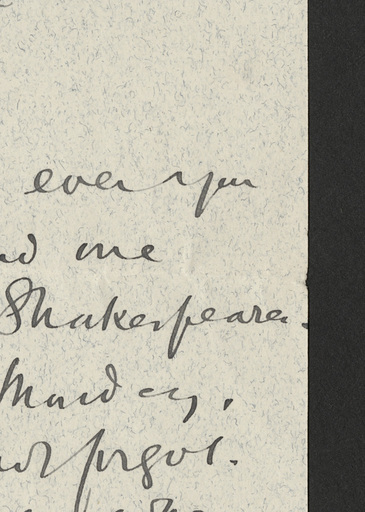 ever you
nd me
Shakespeare.
Monday,
not forgot.